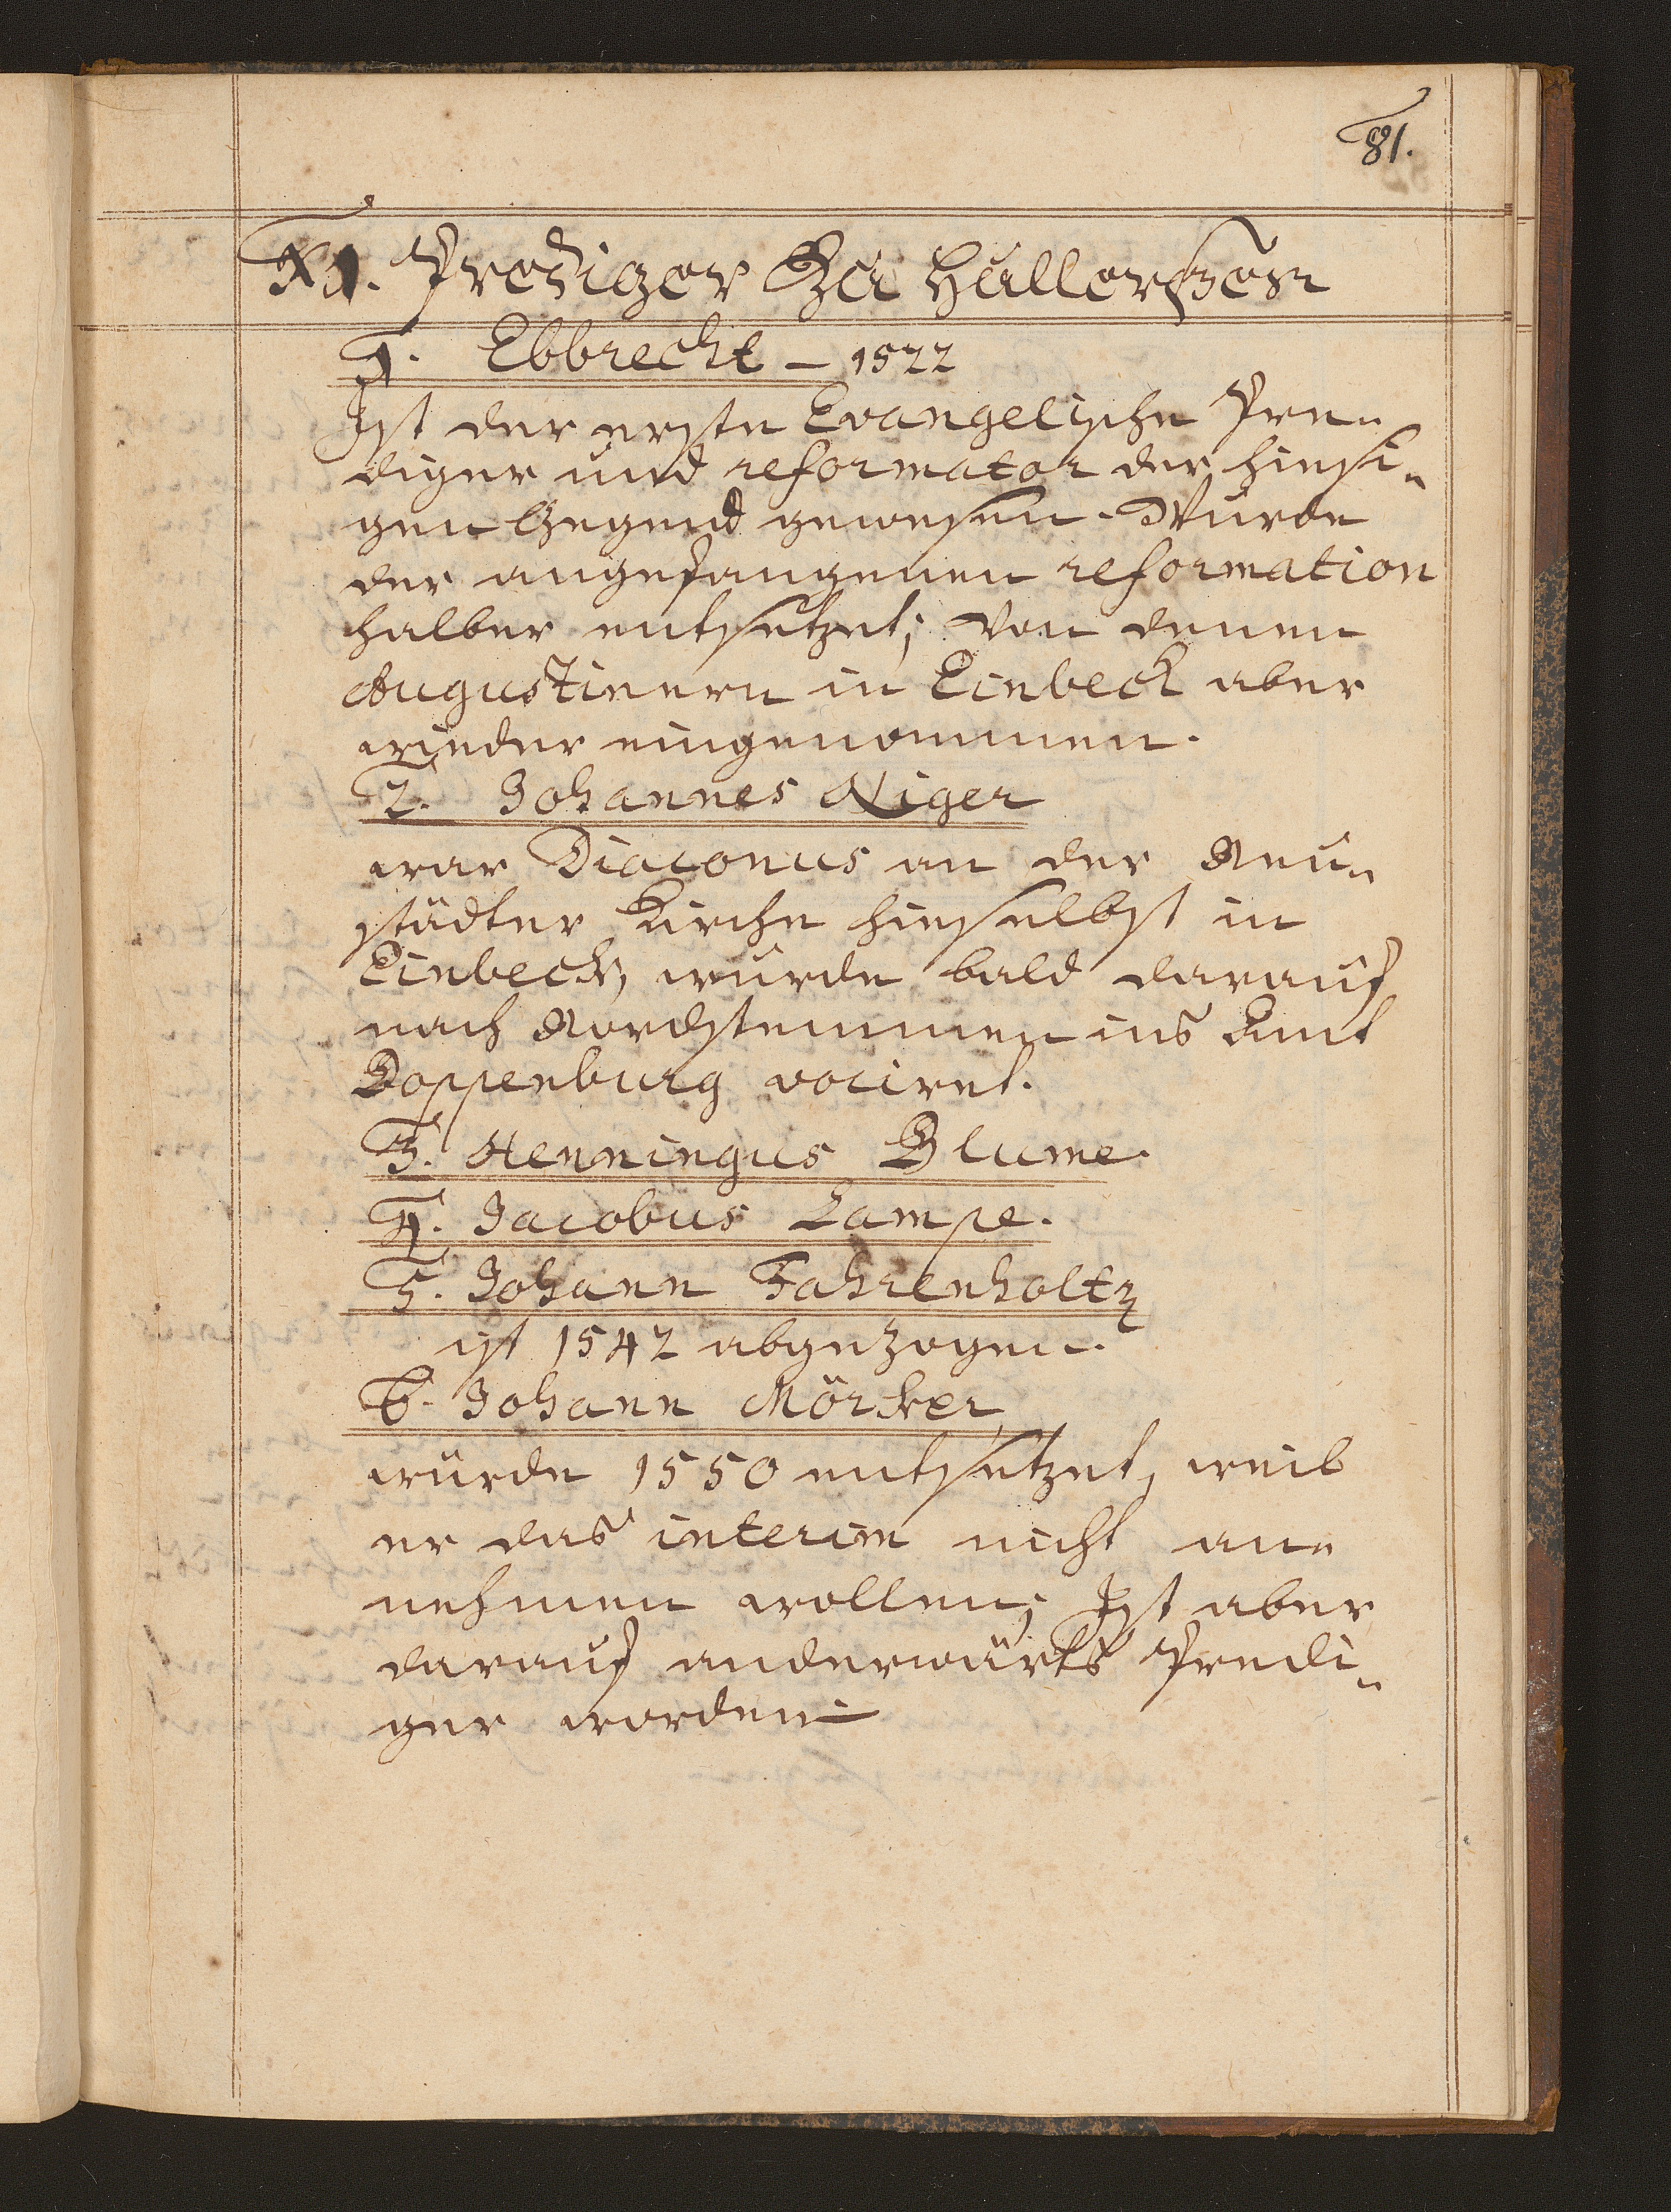 81.
XI. Prediger Zu Hullersen
1. Ebbrecht – 1522
Ist der erste Evangelische Pre„
diger und reformator der hiesi„
gen Gegend gewesen. Wurde
der angefangenen reformation
halber entsetzet; von denen
Augustinern in Einbeck aber
wieder eingenommen.
2. Johannes Niger
war Diaconus an der Neu„
städter Kirche hieselbst in
Einbeck, wurde bald darauf
nach Nordstemmen ins Amt
Poppenburg vociret.
3. Henningus Blume.
4. Jacobus Lampe.
5. Johann Fahrenholtz
ist 1542 abgezogen.
6. Johann Mörker
wurde 1550 entsetzet, weil
er das interim nicht an„
nehmen wollen; Ist aber
darauf anderwärts Predi„
ger worden –